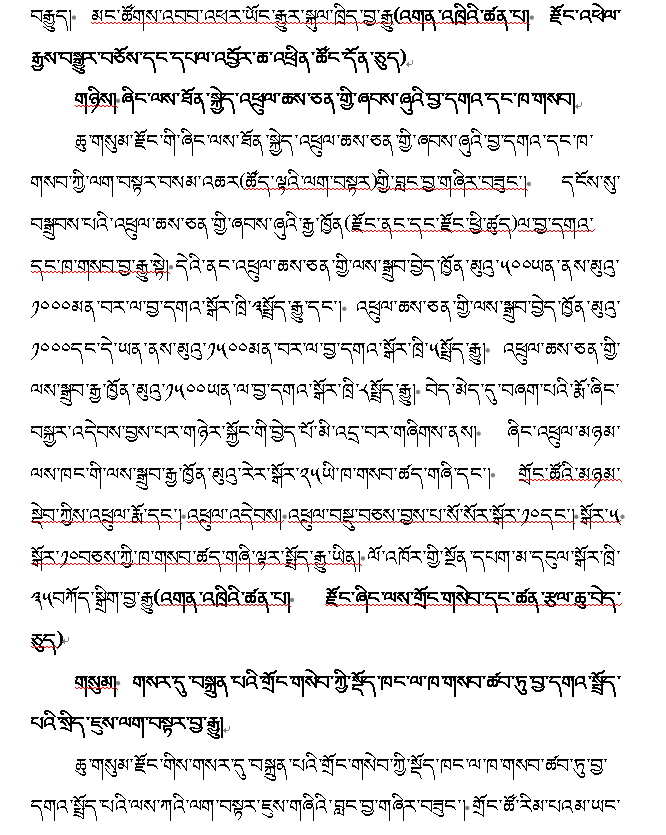 བརྒྱུད། མང་ཚོགས་འབབ་འཕར་ཡོང་རྒྱུར་སྐུལ་ཁྲིད་བྱ་རྒྱུ(འགན་འཁྲིའི་ཚན་པ། རྫོང་འཕེལ་
རྒྱས་བསྒྱུར་བཅོས་དང་དཔལ་འབྱོར་ཆ་འཕྲིན་ཚོང་དོན་ཅུད)
གཉིས། ཞིང་ལས་ཐོན་སྐྱེད་འཕྲུལ་ཆས་ཅན་གྱི་ཞབས་ཞུའི་བྱ་དགའ་དང་ཁ་གསབ།
ཆུ་གསུམ་རྫོང་གི་ཞིང་ལས་ཐོན་སྐྱེད་འཕྲུལ་ཆས་ཅན་གྱི་ཞབས་ཞུའི་བྱ་དགའ་དང་ཁ་
གསབ་ཀྱི་ལག་བསྟར་བསམ་འཆར(ཚོད་ལྟའི་ལག་བསྟར)གྱི་བླང་བྱ་གཞིར་བཟུང་། དངོས་སུ་
བསྒྲུབས་པའི་འཕྲུལ་ཆས་ཅན་གྱི་ཞབས་ཞུའི་རྒྱ་ཁྱོན(རྫོང་ནང་དང་རྫོང་ཕྱི་ཚུད)ལ་བྱ་དགའ་
དང་ཁ་གསབ་བྱ་རྒྱུ་སྟེ། དེའི་ནང་འཕྲུལ་ཆས་ཅན་གྱི་ལས་སྒྲུབ་བྱེད་ཁྱོན་མུའུ་༥༠༠ཡན་ནས་མུའུ་
༡༠༠༠མན་བར་ལ་བྱ་དགའ་སྒོར་ཁྲི་༣སྤྲོད་རྒྱུ་དང་། འཕྲུལ་ཆས་ཅན་གྱི་ལས་སྒྲུབ་བྱེད་ཁྱོན་མུའུ་
༡༠༠༠དང་དེ་ཡན་ནས་མུའུ་༡༥༠༠མན་བར་ལ་བྱ་དགའ་སྒོར་ཁྲི་༥སྤྲོད་རྒྱུ། འཕྲུལ་ཆས་ཅན་གྱི་
ལས་སྒྲུབ་རྒྱ་ཁྱོན་མུའུ་༡༥༠༠ཡན་ལ་བྱ་དགའ་སྒོར་ཁྲི་༨སྤྲོད་རྒྱུ། བེད་མེད་དུ་བཞག་པའི་རྨོ་ཞིང་
བསྐྱར་འདེབས་བྱས་པར་གཉེར་སྐྱོང་གི་བྱེད་པོ་མི་འདྲ་བར་གཞིགས་ནས། ཞིང་འཕྲུལ་མཉམ་
ལས་ཁང་གི་ལས་སྒྲུབ་རྒྱ་ཁྱོན་མུའུ་རེར་སྒོར་༢༥ཡི་ཁ་གསབ་ཚད་གཞི་དང་། གྲོང་ཚོའི་མཉམ་
སྡེབ་ཀྱིས་འཕྲུལ་རྨོ་དང་། འཕྲུལ་འདེབས། འཕྲུལ་བསྡུ་བཅས་བྱས་པ་སོ་སོར་སྒོར་༡༠དང་། སྒོར་༥
སྒོར་༡༠བཅས་ཀྱི་ཁ་གསབ་ཚད་གཞི་ལྟར་སྤྲོད་རྒྱུ་ཡིན། ལོ་འཁོར་གྱི་སྔོན་དཔག་མ་དངུལ་སྒོར་ཁྲི་
༣༥བཀོད་སྒྲིག་བྱ་རྒྱུ(འགན་འཁྲིའི་ཚན་པ། རྫོང་ཞིང་ལས་གྲོང་གསེབ་དང་ཚན་རྩལ་ཆུ་བེད་
ཅུད)
གསུམ། གསར་དུ་བསྐྲུན་པའི་གྲོང་གསེབ་ཀྱི་སྡོད་ཁང་ལ་ཁ་གསབ་ཚབ་ཏུ་བྱ་དགའ་སྤྲོད་
པའི་སྲིད་ཇུས་ལག་བསྟར་བྱ་རྒྱུ།
ཆུ་གསུམ་རྫོང་གིས་གསར་དུ་བསྐྲུན་པའི་གྲོང་གསེབ་ཀྱི་སྡོད་ཁང་ལ་ཁ་གསབ་ཚབ་ཏུ་བྱ་
དགའ་སྤྲོད་པའི་ལས་ཀའི་ལག་བསྟར་ཇུས་གཞིའི་བླང་བྱ་གཞིར་བཟུང་། གྲོང་ཚོ་རིམ་པའམ་ཡང་